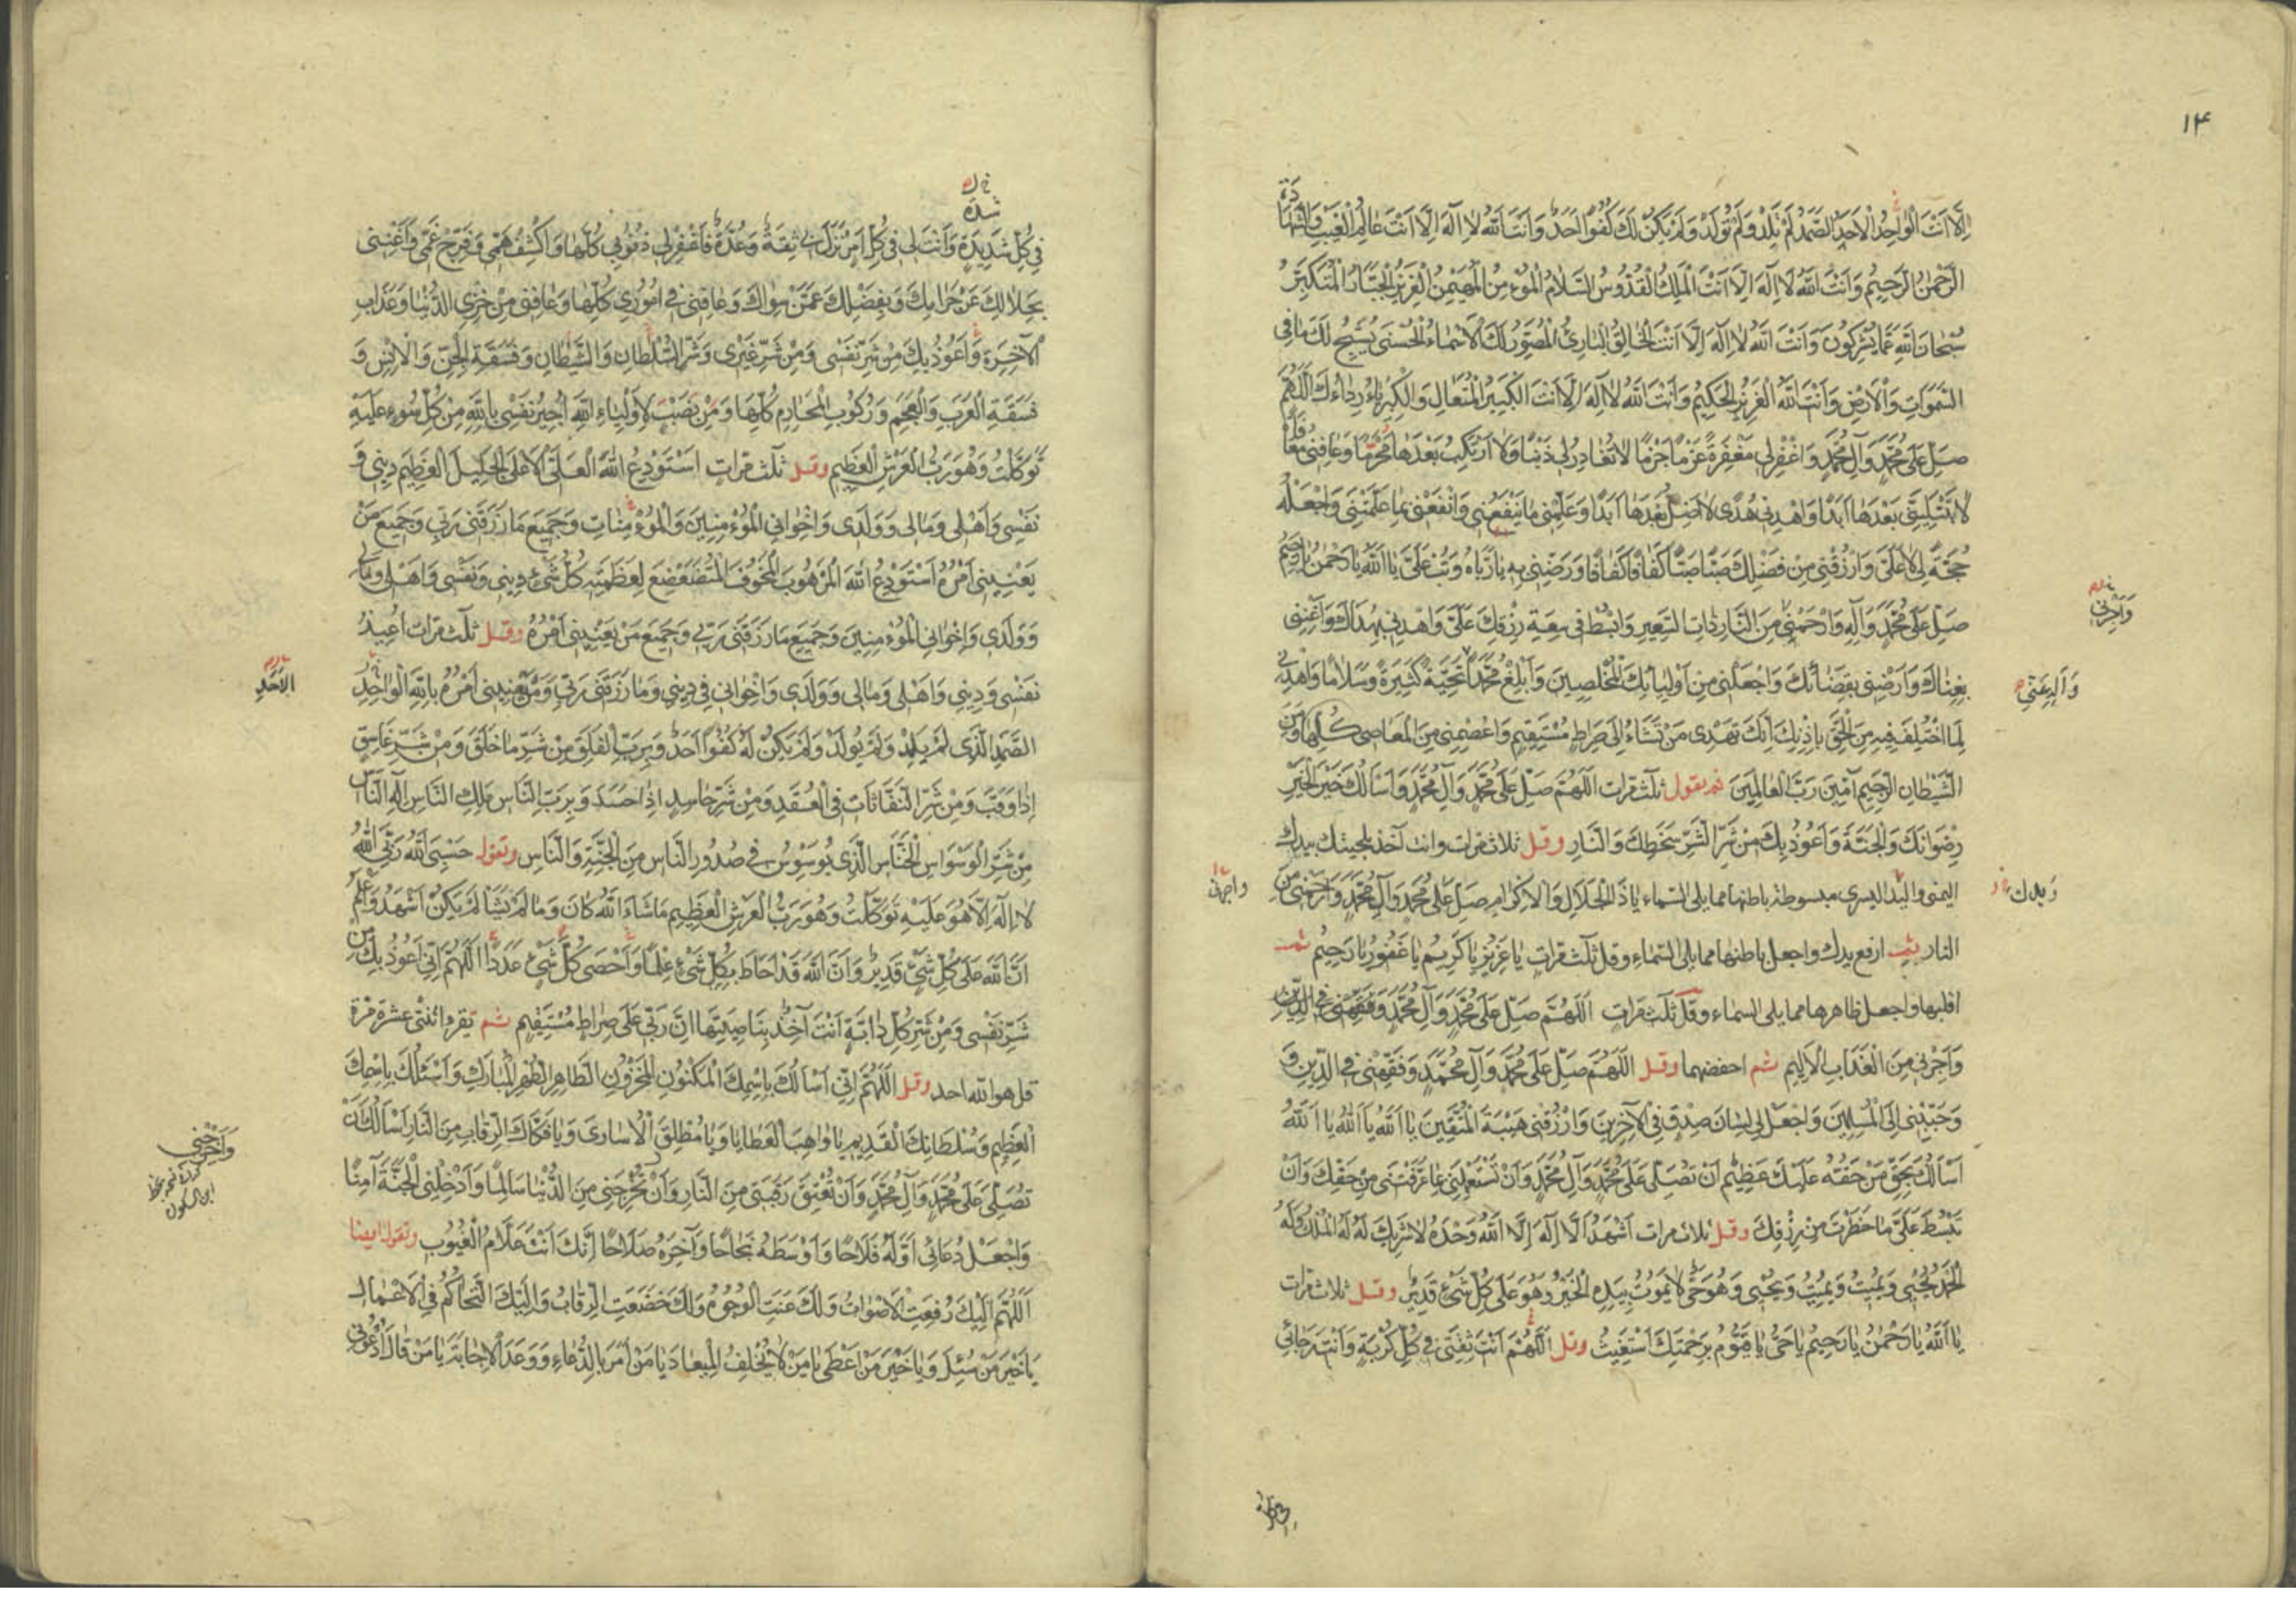 ١٤
اِلَّا اَنْتَ الْوَاحِدُ الْاَحَدُ الصَّمَدُ لَمْ تَلِدْ وَلَمْ تُولَدْ وَلَمْ يَكُنْ لَكَ كُفُوًا اَحَدٌ وَاَنْتَ اللّٰهُ لَا اِلٰهَ اِلَّا اَنْتَ عَالِمُ الْغَيْبِ وَالشَّهَادَةِ
الرَّحْمٰنُ الرَّحِيمُ وَاَنْتَ اللّٰهُ لَا اِلٰهَ اِلَّا اَنْتَ الْمَلِكُ الْقُدُّوسُ السَّلَامُ الْمُؤْمِنُ الْمُهَيْمِنُ الْعَزِيزُ الْجَبَّارُ الْمُتَكَبِّرُ
سُبْحَانَ اللّٰهِ عَمَّا يُشْرِكُونَ وَاَنْتَ اللّٰهُ لَا اِلٰهَ اِلَّا اَنْتَ الْخَالِقُ الْبَارِئُ الْمُصَوِّرُ لَكَ الْاَسْمَاءُ الْحُسْنٰى يُسَبِّحُ لَكَ مَا فِى
السَّمٰوَاتِ وَالْاَرْضِ وَاَنْتَ اللّٰهُ الْعَزِيزُ الْحَكِيمُ وَاَنْتَ اللّٰهُ لَا اِلٰهَ اِلَّا اَنْتَ الْكَبِيرُ الْمُتَعَالِ وَالْكِبْرِيَاءُ رِدَاءُكَ اَللّٰهُمَّ
صَلِّ عَلَى مُحَمَّدٍ وَآلِ مُحَمَّدٍ وَاغْفِرْ لِي مَغْفِرَةً عَزْمًا جَزْمًا لَا تُغَادِرُ لِي ذَنْبًا وَلَا اَرْتَكِبُ بَعْدَهَا مُحَرَّمًا وَعَافِنِي مُعَافَاةً
لَا تَبْتَلِيَنِّي بَعْدَهَا اَبَدًا وَاهْدِنِي هُدًى لَا اَضِلُّ بَعْدَهَا اَبَدًا وَعَلِّمْنِي مَا يَنْفَعُنِي وَانْفَعْنِي بِمَا عَلَّمْتَنِي وَاجْعَلْهُ
حُجَّةً لِي لَا عَلَيَّ وَارْزُقْنِي مِنْ فَضْلِكَ صَبًّا صَبًّا كَفَافًا كَفَافًا وَرَضِّنِي بِهِ يَا رَبَّاهُ وَتُبْ عَلَيَّ يَا اَللّٰهُ يَا رَحْمٰنُ يَا رَحِيمُ
صَلِّ عَلَى مُحَمَّدٍ وَآلِهِ وَارْحَمْنِي مِنَ النَّارِ ذَاتِ السَّعِيرِ وَابْسُطْ فِي سَعَةِ رِزْقِكَ عَلَيَّ وَاهْدِنِي بِهُدَاكَ وَاَغْنِنِي
وَاَجِرْنِي
بِغِنَاكَ وَارْضِنِي بِقَضَائِكَ وَاجْعَلْنِي مِنْ اَوْلِيَائِكَ الْمُخْلَصِينَ وَاَبْلِغْ مُحَمَّدًا تَحِيَّةً كَثِيرَةً وَسَلَامًا وَاهْدِنِي
لِمَا اخْتُلِفَ فِيهِ مِنَ الْحَقِّ بِاِذْنِكَ اِنَّكَ تَهْدِى مَنْ تَشَاءُ اِلَى صِرَاطٍ مُسْتَقِيمٍ وَاعْصِمْنِي مِنَ الْمَعَاصِى كُلِّهَا وَمِنَ
الشَّيْطَانِ الرَّجِيمِ آمِينَ رَبَّ الْعَالَمِينَ ثم يقول ثلث مرات اَللّٰهُمَّ صَلِّ عَلَى مُحَمَّدٍ وَآلِ مُحَمَّدٍ وَاَسْاَلُكَ خَيْرَ الْخَيْرِ
رِضْوَانَكَ وَالْجَنَّةَ وَاَعُوذُ بِكَ مِنْ شَرِّ الشَّرِّ سَخَطِكَ وَالنَّارِ وقل ثلاث مرات وانت آخذ بلحيتك بيدك
اليمنى واليد اليسرى مبسوطة باطنها مما يلى السماء يَا ذَا الْجَلَالِ وَالْاِكْرَامِ صَلِّ عَلَى مُحَمَّدٍ وَآلِ مُحَمَّدٍ وَارْحَمْنِي مِنَ
وَيدك
النار ثم ارفع يدك واجعل باطنها مما يلى السماء وقل ثلث مرات يَا عَزِيزُ يَا كَرِيمُ يَا غَفُورُ يَا رَحِيمُ ثم
اقلبها واجعل ظاهرها مما يلى السماء وقل ثلث مرات اَللّٰهُمَّ صَلِّ عَلَى مُحَمَّدٍ وَآلِ مُحَمَّدٍ وَفَقِّهْنِي فِي الدِّينِ
وَاَجِرْنِي مِنَ الْعَذَابِ الْاَلِيمِ ثم اخفضهما وقل اَللّٰهُمَّ صَلِّ عَلَى مُحَمَّدٍ وَآلِ مُحَمَّدٍ وَفَقِّهْنِي فِي الدِّينِ وَ
وَحَبِّبْنِي اِلَى الْمُسْلِمِينَ وَاجْعَلْ لِي لِسَانَ صِدْقٍ فِي الْآخِرِينَ وَارْزُقْنِي هَيْبَةَ الْمُتَّقِينَ يَا اَللّٰهُ يَا اَللّٰهُ يَا اَللّٰهُ
اَسْاَلُكَ بِحَقِّ مَنْ حَقُّهُ عَلَيْكَ عَظِيمٌ اَنْ تُصَلِّيَ عَلَى مُحَمَّدٍ وَآلِ مُحَمَّدٍ وَاَنْ تَسْتَعْمِلَنِي بِمَا عَرَّفْتَنِي مِنْ حَقِّكَ وَاَنْ
تَبْسُطَ عَلَيَّ مَا حَظَرْتَ مِنْ رِزْقِكَ وقل ثلاث مرات اَشْهَدُ اَلَّا اِلٰهَ اِلَّا اللّٰهُ وَحْدَهُ لَا شَرِيكَ لَهُ لَهُ الْمُلْكُ وَلَهُ
الْحَمْدُ يُحْيِي وَيُمِيتُ وَيُمِيتُ وَيُحْيِي وَهُوَ حَيٌّ لَا يَمُوتُ بِيَدِهِ الْخَيْرُ وَهُوَ عَلَى كُلِّ شَيْءٍ قَدِيرٌ وقل ثلاث مرات
يَا اَللّٰهُ يَا رَحْمٰنُ يَا رَحِيمُ يَا حَيُّ يَا قَيُّومُ بِرَحْمَتِكَ اَسْتَغِيثُ وقل اَللّٰهُمَّ اَنْتَ ثِقَتِي فِي كُلِّ كُرْبَةٍ وَاَنْتَ رَجَائِي
شدة
فِي كُلِّ شَدِيدَةٍ وَاَنْتَ لِي فِي كُلِّ اَمْرٍ نَزَلَ بِي ثِقَةٌ وَعُدَّةٌ فَاغْفِرْ لِي ذُنُوبِي كُلَّهَا وَاكْشِفْ هَمِّي وَفَرِّجْ غَمِّي وَاَغْنِنِي
بِحَلَالِكَ عَنْ حَرَامِكَ وَبِفَضْلِكَ عَمَّنْ سِوَاكَ وَعَافِنِي فِي اُمُورِي كُلِّهَا وَعَافِنِي مِنْ خِزْىِ الدُّنْيَا وَعَذَابِ
الْآخِرَةِ وَاَعُوذُ بِكَ مِنْ شَرِّ نَفْسِي وَمِنْ شَرِّ غَيْرِي وَشَرِّ السُّلْطَانِ وَالشَّيْطَانِ وَفَسَقَةِ الْجِنِّ وَالْاِنْسِ وَ
فَسَقَةِ الْعَرَبِ وَالْعَجَمِ وَرُكُوبِ الْمَحَارِمِ كُلِّهَا وَمَنْ نَصَبَ لِاَوْلِيَاءِ اللّٰهِ اُجِيرُ نَفْسِي بِاللّٰهِ مِنْ كُلِّ سُوءٍ عَلَيْهِ
تَوَكَّلْتُ وَهُوَ رَبُّ الْعَرْشِ الْعَظِيمِ وقل ثلث مرات اَسْتَوْدِعُ اللّٰهَ الْعَلِيَّ الْاَعْلَى الْجَلِيلَ الْعَظِيمَ دِينِي وَ
نَفْسِي وَاَهْلِي وَمَالِي وَوَلَدِي وَاِخْوَانِي الْمُؤْمِنِينَ وَالْمُؤْمِنَاتِ وَجَمِيعَ مَا رَزَقَنِي رَبِّي وَجَمِيعَ مَنْ
يَعْنِينِي اَمْرُهُ اَسْتَوْدِعُ اللّٰهَ الْمَرْهُوبَ الْمَخُوفَ الْمُتَضَعْضِعَ لِعَظَمَتِهِ كُلُّ شَيْءٍ دِينِي وَنَفْسِي وَاَهْلِي وَمَالِي
وَوَلَدِي وَاِخْوَانِي الْمُؤْمِنِينَ وَجَمِيعَ مَا رَزَقَنِي رَبِّي وَجَمِيعَ مَنْ يَعْنِينِي اَمْرُهُ وقل ثلث مرات اُعِيذُ
نَفْسِي وَدِينِي وَاَهْلِي وَمَالِي وَوَلَدِي وَاِخْوَانِي فِي دِينِي وَمَا رَزَقَنِي رَبِّي وَمَنْ يَعْنِينِي اَمْرُهُ بِاللّٰهِ الْوَاحِدِ
الْاَحَدِ
الصَّمَدِ الَّذِي لَمْ يَلِدْ وَلَمْ يُولَدْ وَلَمْ يَكُنْ لَهُ كُفُوًا اَحَدٌ وَبِرَبِّ الْفَلَقِ مِنْ شَرِّ مَا خَلَقَ وَمِنْ شَرِّ غَاسِقٍ
اِذَا وَقَبَ وَمِنْ شَرِّ النَّفَّاثَاتِ فِي الْعُقَدِ وَمِنْ شَرِّ حَاسِدٍ اِذَا حَسَدَ وَبِرَبِّ النَّاسِ مَلِكِ النَّاسِ اِلٰهِ النَّاسِ
مِنْ شَرِّ الْوَسْوَاسِ الْخَنَّاسِ الَّذِي يُوَسْوِسُ فِي صُدُورِ النَّاسِ مِنَ الْجِنَّةِ وَالنَّاسِ وتقول حَسْبِيَ اللّٰهُ رَبِّيَ اللّٰهُ
لَا اِلٰهَ اِلَّا هُوَ عَلَيْهِ تَوَكَّلْتُ وَهُوَ رَبُّ الْعَرْشِ الْعَظِيمِ مَا شَاءَ اللّٰهُ كَانَ وَمَا لَمْ يَشَأْ لَمْ يَكُنْ اَشْهَدُ وَاَعْلَمُ
اَنَّ اللّٰهَ عَلَى كُلِّ شَيْءٍ قَدِيرٌ وَاَنَّ اللّٰهَ قَدْ اَحَاطَ بِكُلِّ شَيْءٍ عِلْمًا وَاَحْصَى كُلَّ شَيْءٍ عَدَدًا اَللّٰهُمَّ اِنِّي اَعُوذُ بِكَ مِنْ
شَرِّ نَفْسِي وَمِنْ شَرِّ كُلِّ دَابَّةٍ اَنْتَ آخِذٌ بِنَاصِيَتِهَا اِنَّ رَبِّي عَلَى صِرَاطٍ مُسْتَقِيمٍ ثم تقرء اثنتى عشرة مرة
قل هو الله احد وقل اَللّٰهُمَّ اِنِّي اَسْاَلُكَ بِاسْمِكَ الْمَكْنُونِ الْمَخْزُونِ الطَّاهِرِ الطُّهْرِ الْمُبَارَكِ وَاَسْئَلُكَ بِاسْمِكَ
الْعَظِيمِ وَسُلْطَانِكَ الْقَدِيمِ يَا وَاهِبَ الْعَطَايَا وَيَا مُطْلِقَ الْاُسَارَى وَيَا فَكَّاكَ الرِّقَابِ مِنَ النَّارِ اَسْاَلُكَ اَنْ
وَاَخْرِجْنِي
تُصَلِّيَ عَلَى مُحَمَّدٍ وَآلِ مُحَمَّدٍ وَاَنْ تُعْتِقَ رَقَبَتِي مِنَ النَّارِ وَاَنْ تُخْرِجَنِي مِنَ الدُّنْيَا سَالِمًا وَاَدْخِلْنِي الْجَنَّةَ آمِنًا
وَاجْعَلْ دُعَائِي اَوَّلَهُ فَلَاحًا وَاَوْسَطَهُ نَجَاحًا وَآخِرَهُ صَلَاحًا اِنَّكَ اَنْتَ عَلَّامُ الْغُيُوبِ وتقول ايضا
اَللّٰهُمَّ اِلَيْكَ رُفِعَتِ الْاَصْوَاتُ وَلَكَ عَنَتِ الْوُجُوهُ وَلَكَ خَضَعَتِ الرِّقَابُ وَاِلَيْكَ التَّحَاكُمُ فِي الْاَعْمَالِ
يَا خَيْرَ مَنْ سُئِلَ وَيَا خَيْرَ مَنْ اَعْطَى يَا مَنْ لَا يُخْلِفُ الْمِيعَادَ يَا مَنْ اَمَرَ بِالدُّعَاءِ وَوَعَدَ الْاِجَابَةَ يَا مَنْ قَالَ ادْعُونِي